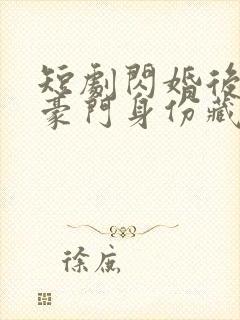 短劇閃婚後
豪門身份藏
徐底